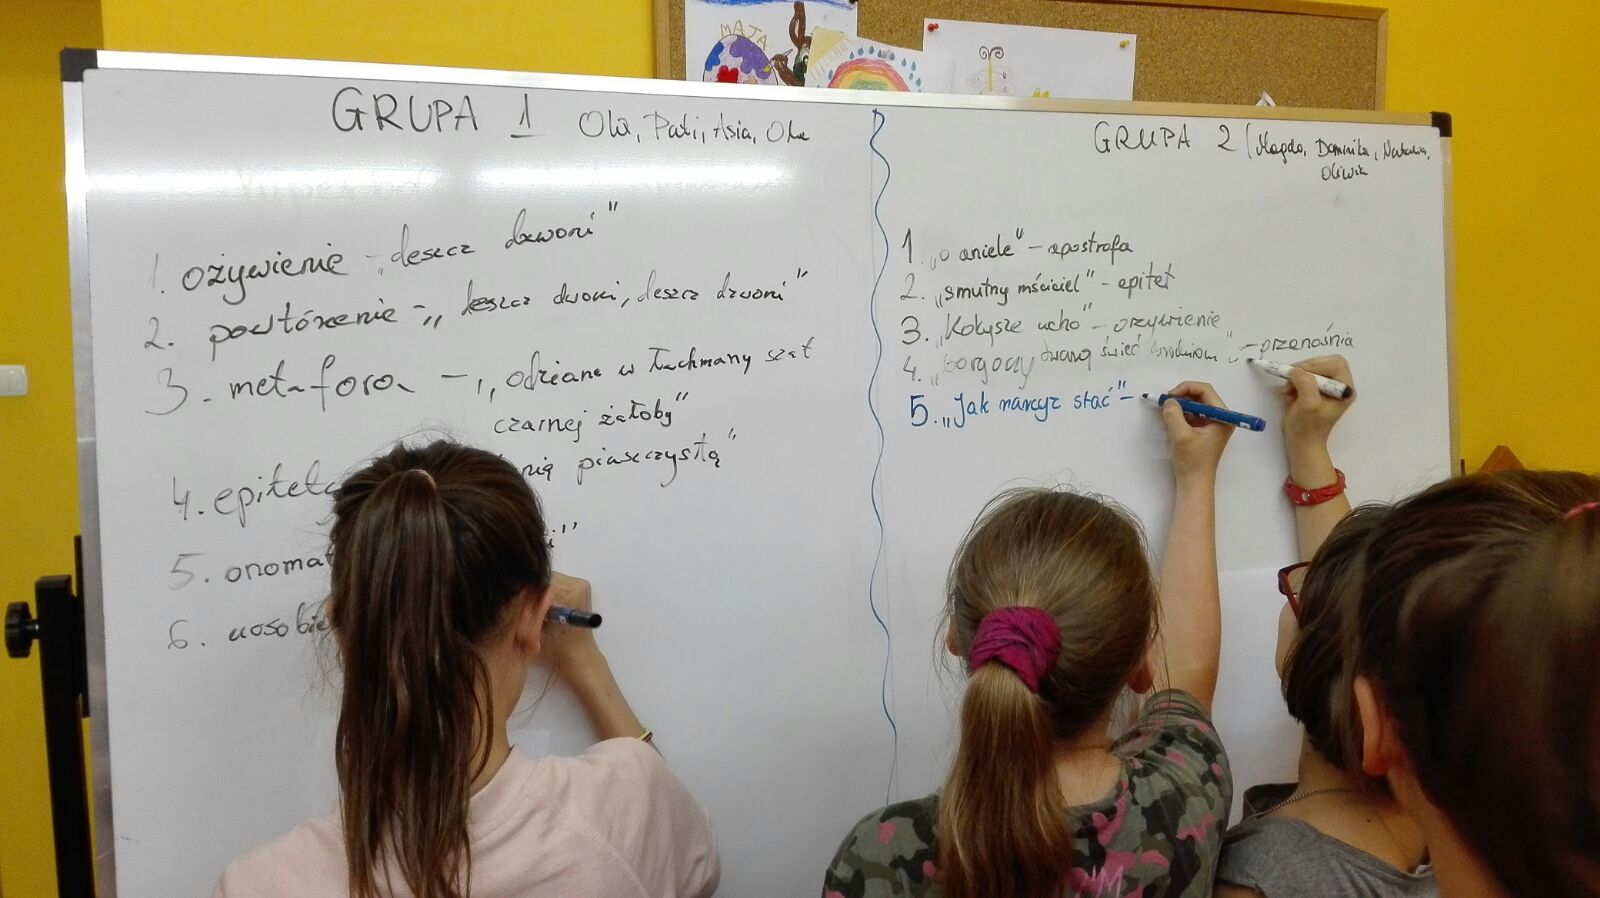 MAJA
GRUPA 1 Ola, Pati, Asia, Ola
1. ożywienie - „deszcz dzwoni"
2. powtórzenie - „deszcz dwoni, deszcz dzwoni"
3. metafora - „odziane w łachmany szat
czarnej żałoby"
4. epitety
nią piaszczystą"
5. onomat
i"
6. uosobie
GRUPA 2 (Magda, Dominika, Natalia,
Oliwia
1. „o aniele" - apostrofa
2. „smutny mściciel" - epitet
3. „Kołysze ucho" - orzywienie
4. twarzą świeć - przenośnia
5. „Jak narcyz stać" -